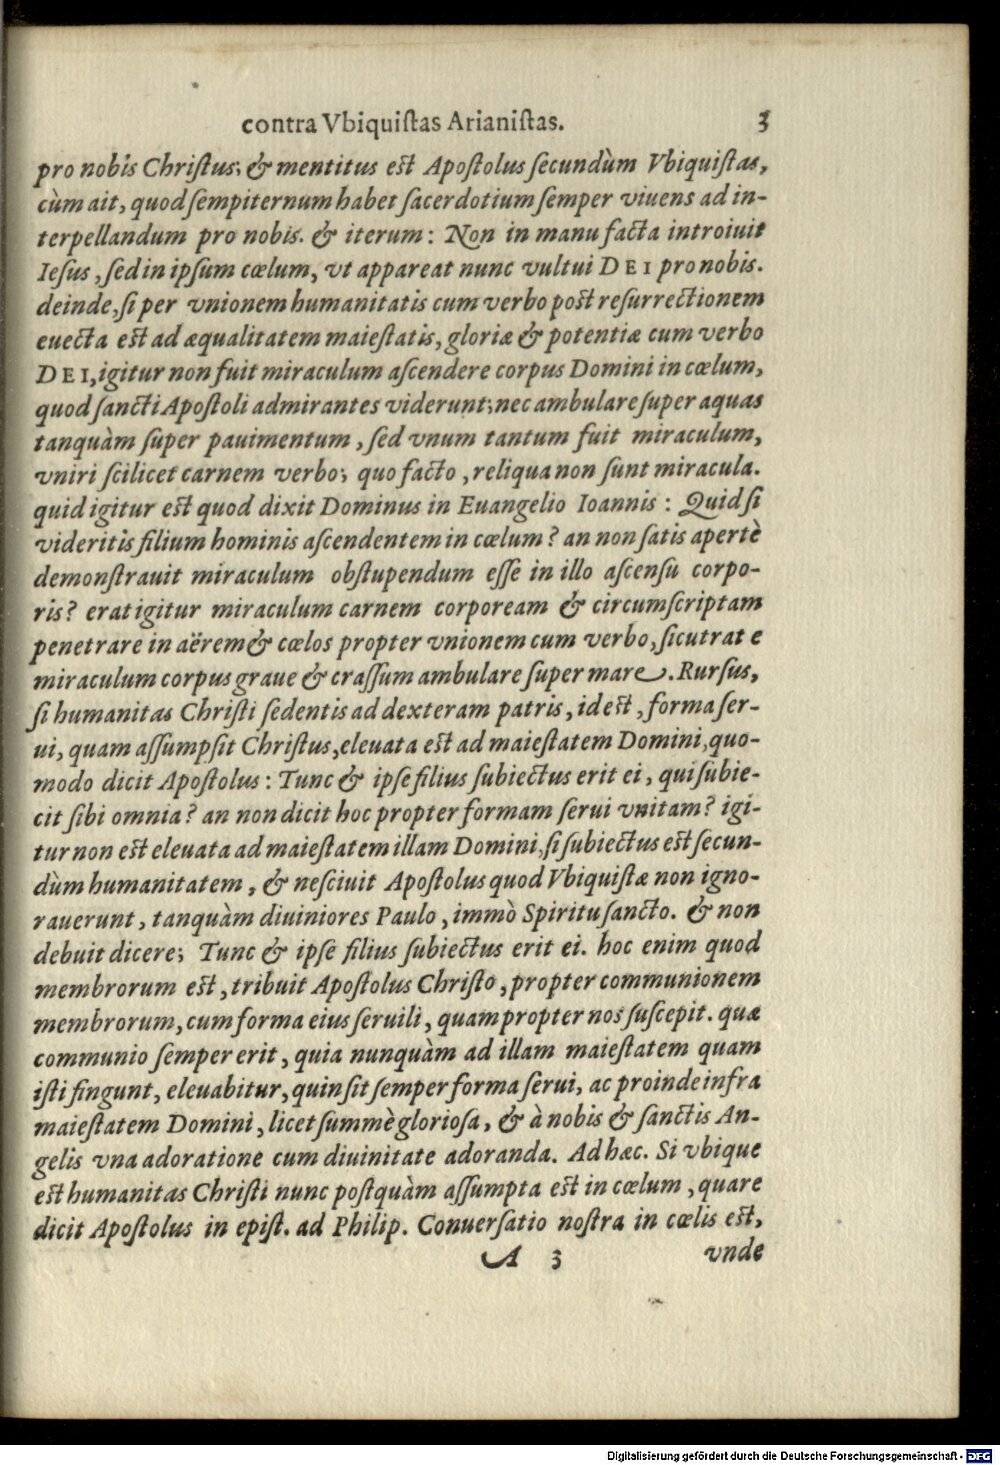 contra Vbiquiſtas Arianiſtas. 3
pro nobis Chriſtus; & mentitus eſt Apoſtolus ſecundùm Vbiquiſtas,
cùm ait, quod ſempiternum habet ſacerdotium ſemper viuens ad in-
terpellandum pro nobis. & iterum: Non in manu facta introiuit
Ieſus, ſed in ipſum cœlum, vt appareat nunc vultui DEI pro nobis.
deinde, ſi per vnionem humanitatis cum verbo poſt reſurrectionem
euecta eſt ad æqualitatem maieſtatis, gloriæ & potentiæ cum verbo
DEI, igitur non fuit miraculum aſcendere corpus Domini in cœlum,
quod ſancti Apoſtoli admirantes viderunt; nec ambulare ſuper aquas
tanquàm ſuper pauimentum, ſed vnum tantum fuit miraculum,
vniri ſcilicet carnem verbo; quo facto, reliqua non ſunt miracula.
quid igitur eſt quod dixit Dominus in Euangelio Ioannis: Quid ſi
videritis filium hominis aſcendentem in cœlum? an non ſatis apertè
demonſtrauit miraculum obſtupendum eſſe in illo aſcenſu corpo-
ris? erat igitur miraculum carnem corpoream & circumſcriptam
penetrare in aërem & cœlos propter vnionem cum verbo, ſicut rat e
miraculum corpus graue & craſſum ambulare ſuper mare. Rurſus,
ſi humanitas Chriſti ſedentis ad dexteram patris, id eſt, forma ſer-
ui, quam aſſumpſit Chriſtus, eleuata eſt ad maieſtatem Domini, quo-
modo dicit Apoſtolus: Tunc & ipſe filius ſubiectus erit ei, qui ſubie-
cit ſibi omnia? an non dicit hoc propter formam ſerui vnitam? igi-
tur non eſt eleuata ad maieſtatem illam Domini, ſi ſubiectus eſt ſecun-
dùm humanitatem, & neſciuit Apoſtolus quod Vbiquiſtæ non igno-
rauerunt, tanquàm diuiniores Paulo, immò Spiritu ſancto. & non
debuit dicere; Tunc & ipſe filius ſubiectus erit ei. hoc enim quod
membrorum eſt, tribuit Apoſtolus Chriſto, propter communionem
membrorum, cum forma eius ſeruili, quam propter nos ſuſcepit. quæ
communio ſemper erit, quia nunquàm ad illam maieſtatem quam
iſti fingunt, eleuabitur, quin ſit ſemper forma ſerui, ac proinde infra
maieſtatem Domini, licet ſummè glorioſa, & à nobis & ſanctis An-
gelis vna adoratione cum diuinitate adoranda. Ad hæc. Si vbique
eſt humanitas Chriſti nunc poſtquàm aſſumpta eſt in cœlum, quare
dicit Apoſtolus in epiſt. ad Philip. Conuerſatio noſtra in cœlis eſt,
A 3 vnde
Digitalisierung gefördert durch die Deutsche Forschungsgemeinschaft - DFG